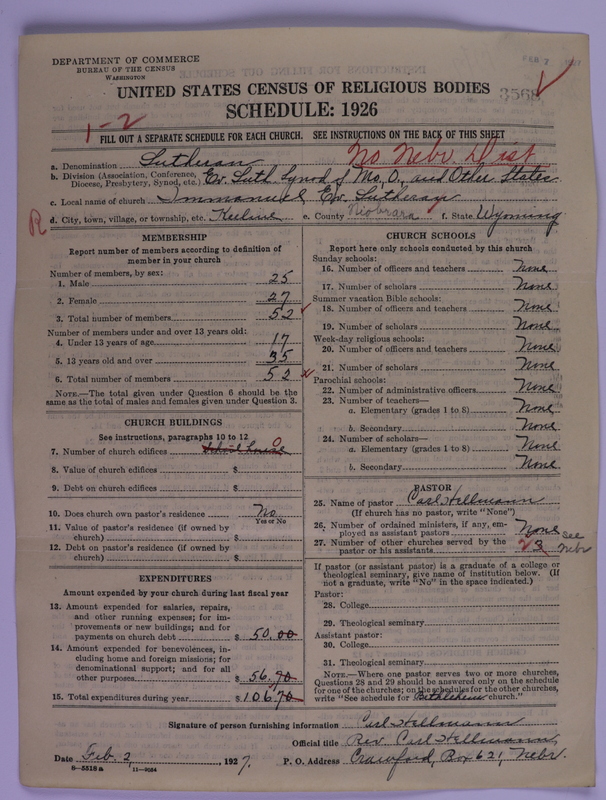 DEPARTMENT OF COMMERCE
BUREAU OF THE CENSUS
WASHINGTON
FEB 7
UNITED STATES CENSUS OF RELIGIOUS BODIES
3568
SCHEDULE: 1926
1-2
FILL OUT A SEPARATE SCHEDULE FOR EACH CHURCH. SEE INSTRUCTIONS ON THE BACK OF THIS SHEET
No Nebr. Dist
a. Denomination Lutheran
b. Division (Association, Conference, Diocese, Presbytery, Synod, etc.) Ev. Luth. Synod of Mo., O., and Other States
c. Local name of church Immanuel Ev. Lutheran
R
d. City, town, village, or township, etc. Keeline e. County Niobrara f. State Wyoming
MEMBERSHIP
Report number of members according to definition of
member in your church
Number of members, by sex:
1. Male 25
2. Female 27
3. Total number of members 52
Number of members under and over 13 years old:
4. Under 13 years of age 17
5. 13 years old and over 35
6. Total number of members 52
NOTE.—The total given under Question 6 should be
same as the total of males and females given under Question 3.
CHURCH BUILDINGS
See instructions, paragraphs 10 to 12
7. Number of church edifices school house 0
8. Value of church edifices $
9. Debt on church edifices $
10. Does church own pastor's residence No
Yes or No
11. Value of pastor's residence (if owned by
church) $
12. Debt on pastor's residence (if owned by
church) $
EXPENDITURES
Amount expended by your church during last fiscal year
13. Amount expended for salaries, repairs,
and other running expenses; for im-
provements or new buildings; and for
payments on church debt $ 50.00
14. Amount expended for benevolences, in-
cluding home and foreign missions; for
denominational support; and for all
other purposes $ 56.70
15. Total expenditures during year $ 106.70
CHURCH SCHOOLS
Report here only schools conducted by this church
Sunday schools:
16. Number of officers and teachers None
17. Number of scholars None
Summer vacation Bible schools:
18. Number of officers and teachers None
19. Number of scholars None
Week-day religious schools:
20. Number of officers and teachers None
21. Number of scholars None
Parochial schools:
22. Number of administrative officers None
23. Number of teachers—
a. Elementary (grades 1 to 8) None
b. Secondary None
24. Number of scholars—
a. Elementary (grades 1 to 8) None
b. Secondary None
PASTOR
25. Name of pastor Carl Hellmann
(If church has no pastor, write "None")
26. Number of ordained ministers, if any, em-
ployed as assistant pastors None
27. Number of other churches served by the
pastor or his assistants 3 see Nebr
If pastor (or assistant pastor) is a graduate of a college or
theological seminary, give name of institution below. (If
not a graduate, write "No" in the space indicated.)
Pastor:
28. College
29. Theological seminary
Assistant pastor:
30. College
31. Theological seminary
NOTE.—Where one pastor serves two or more churches,
Questions 28 and 29 should be answered only on the schedule
for one of the churches; on the schedules for the other churches,
write "See schedule for Bethlehem church."
Signature of person furnishing information Carl Hellmann
Official title Rev. Carl Hellmann
Date Feb. 2, 1927. P. O. Address Crawford, Box 621, Nebr.
8-5518a 11-9084